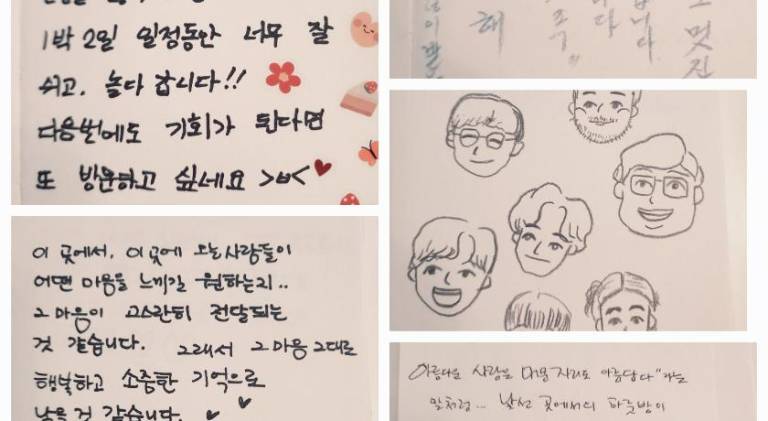 1박 2일 일정동안 너무 잘
쉬고, 놀다 갑니다!!
다음번에도 기회가 된다면
또 방문하고 싶네요 >ㅂ<
이 곳에서, 이 곳에 오는 사람들이
어떤 마음을 느끼길 원하는지..
그 마음이 고스란히 전달되는
것 같습니다. 그래서 그 마음 그대로
행복하고 소중한 기억으로
남을 것 같습니다.
멋진
아름다운 사람은 머문 자리도 아름답다" 라는
말처럼... 낯선 곳에서의 하룻밤이